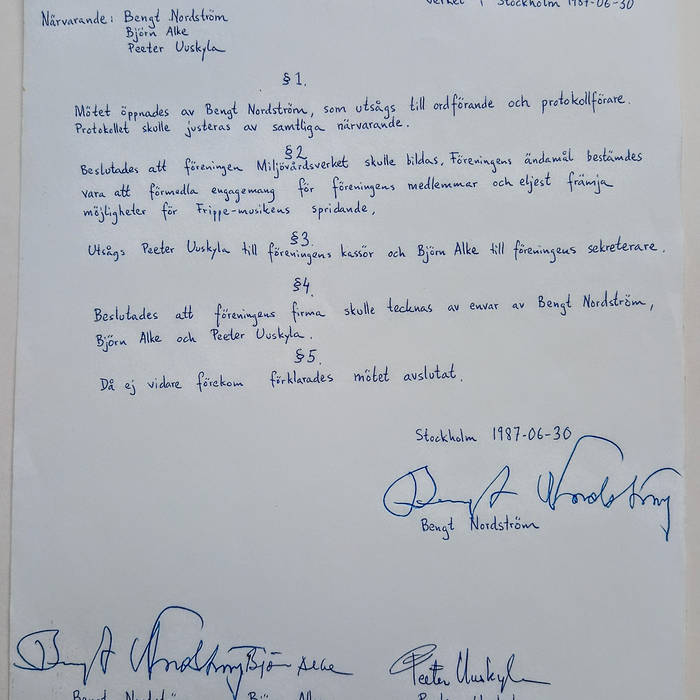 verket i Stockholm 1987-06-30
Närvarande: Bengt Nordström
Björn Alke
Peeter Uuskyla
§1.
Mötet öppnades av Bengt Nordström, som utsågs till ordförande och protokollförare.
Protokollet skulle justeras av samtliga närvarande.
§2
Beslutades att föreningen Miljövårdsverket skulle bildas. Föreningens ändamål bestämdes
vara att förmedla engagemang för föreningens medlemmar och eljest främja
möjligheter för Frippe-musikens spridande.
§3.
Utsågs Peeter Uuskyla till föreningens kassör och Björn Alke till föreningens sekreterare.
§4.
Beslutades att föreningens firma skulle tecknas av envar av Bengt Nordström,
Björn Alke och Peeter Uuskyla.
§5.
Då ej vidare förekom förklarades mötet avslutat.
Stockholm 1987-06-30
Bengt Nordström
Bengt Nordström
Bengt Nordström Björn Alke Peeter Uuskyla
Bengt Nordström Björn Alke